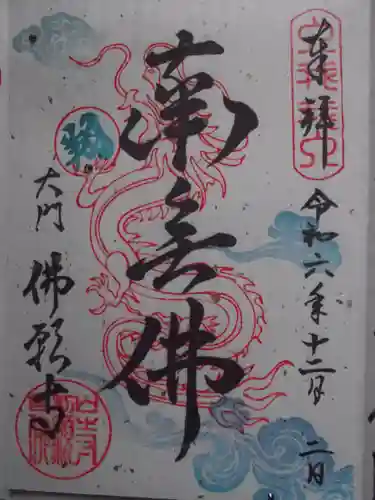 奉拝
令和六年十二月二日
南無佛
大門
佛願寺